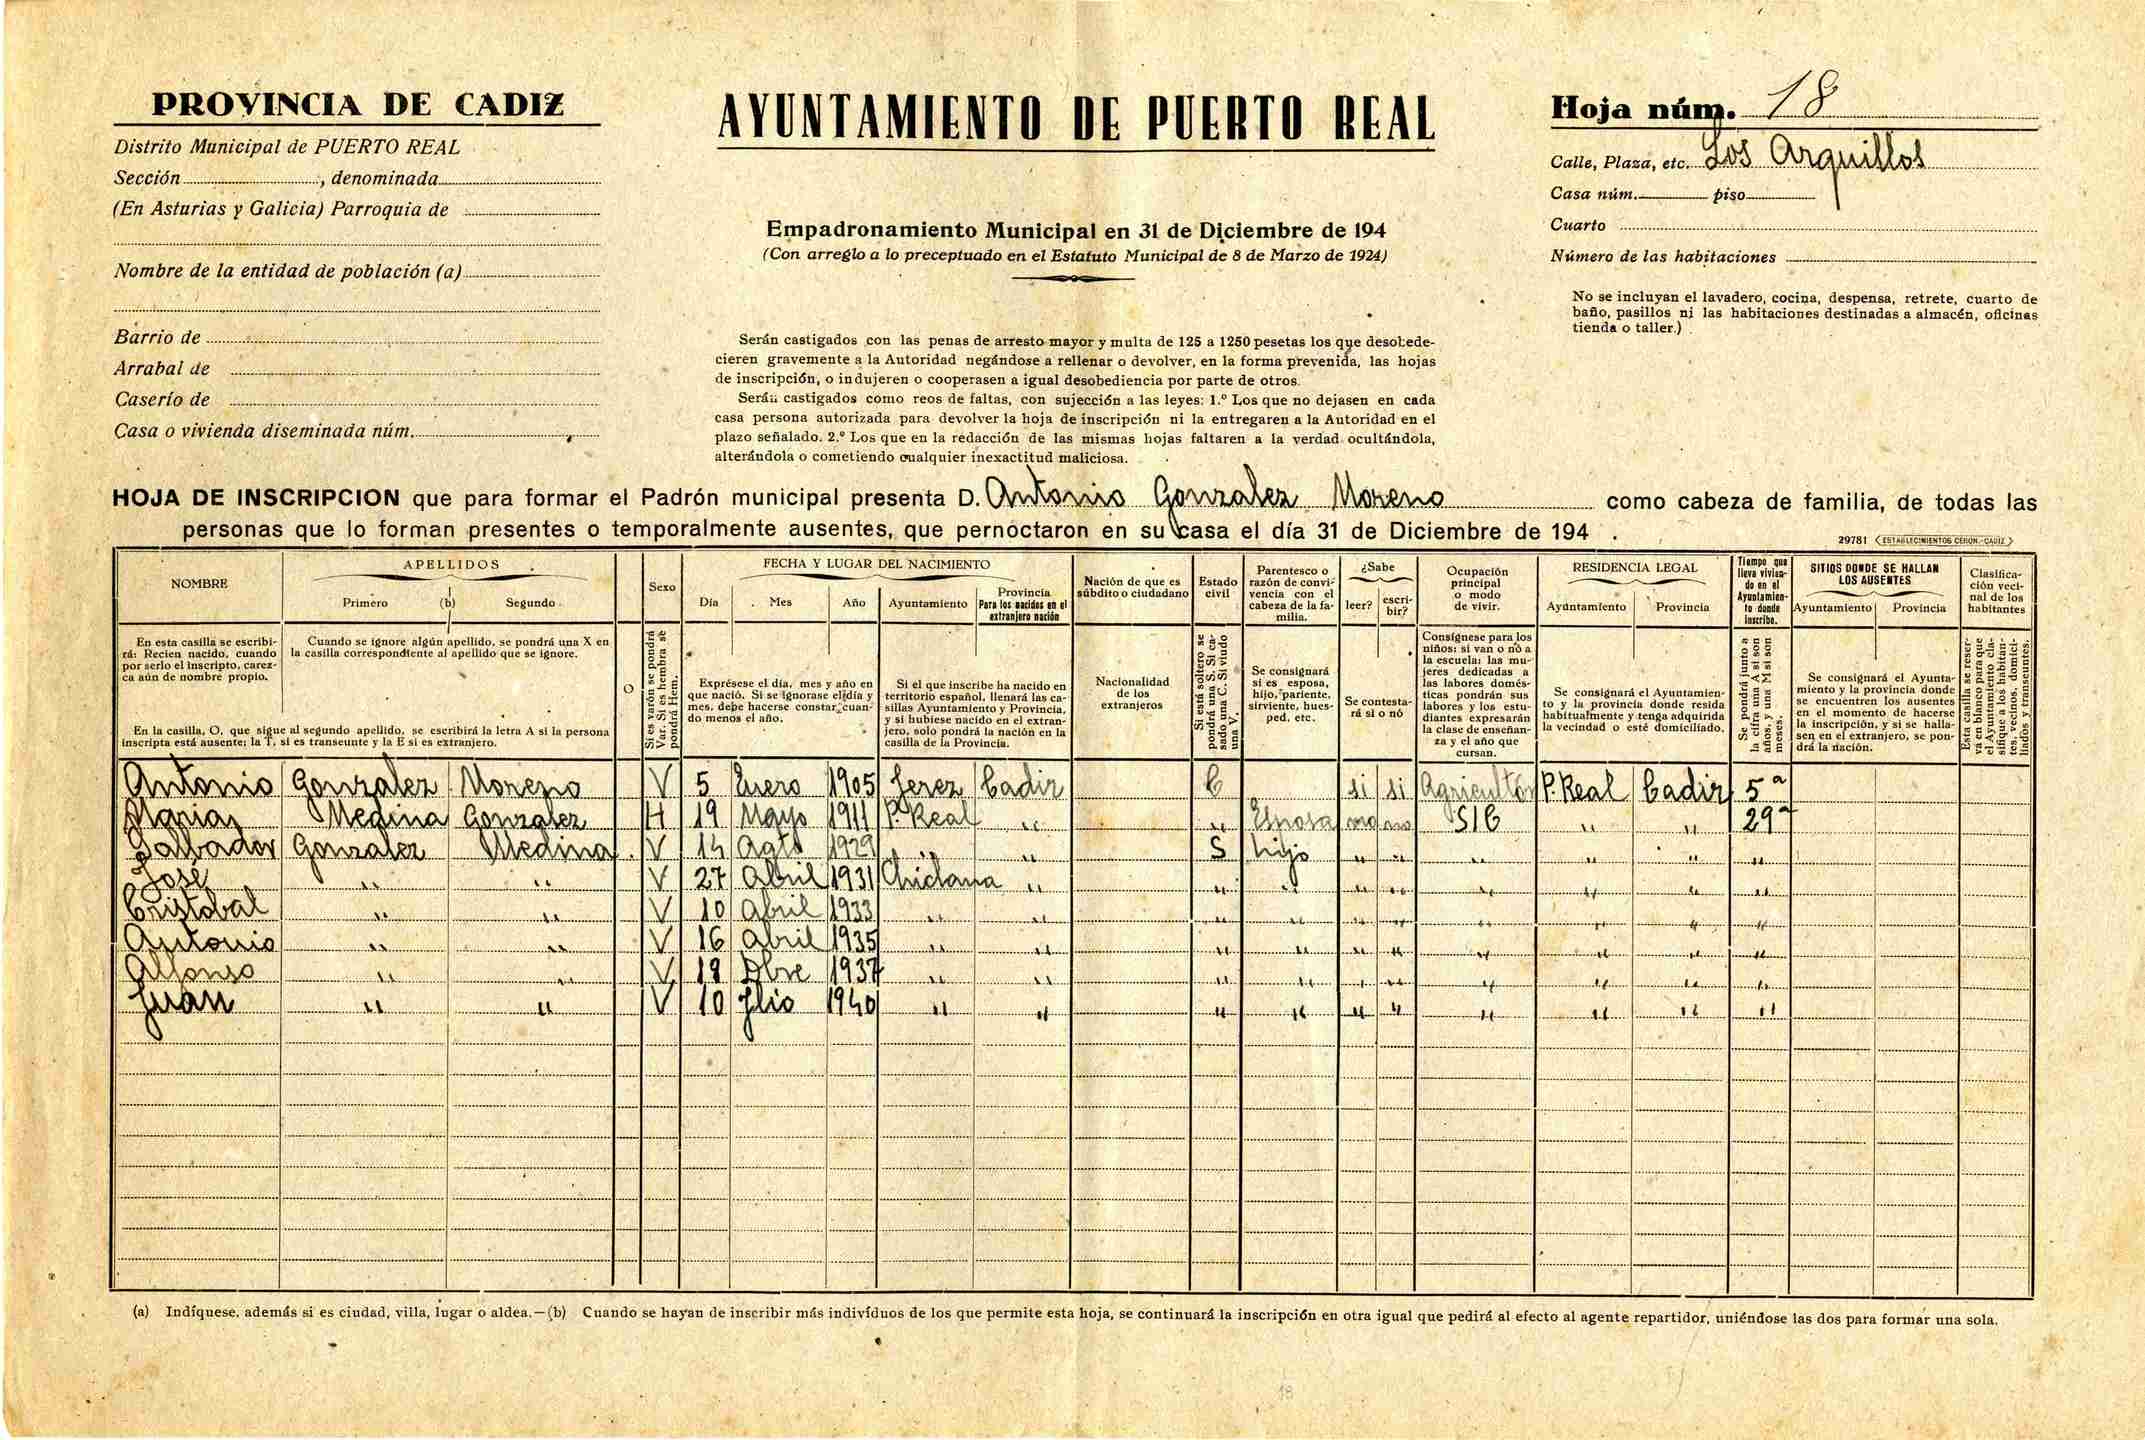 PROVINCIA DE CADIZ
Distrito Municipal de PUERTO REAL
Sección , denominada
(En Asturias y Galicia) Parroquia de
Nombre de la entidad de población (a)
Barrio de
Arrabal de
Caserío de
Casa o vivienda diseminada núm.
AYUNTAMIENTO DE PUERTO REAL
Empadronamiento Municipal en 31 de Diciembre de 194
(Con arreglo a lo preceptuado en el Estatuto Municipal de 8 de Marzo de 1924)
Serán castigados con las penas de arresto mayor y multa de 125 a 1250 pesetas los que desobede-
cieren gravemente a la Autoridad negándose a rellenar o devolver, en la forma prevenida, las hojas
de inscripción, o indujeren o cooperasen a igual desobediencia por parte de otros.
Serán castigados como reos de faltas, con sujección a las leyes: 1.º Los que no dejasen en cada
casa persona autorizada para devolver la hoja de inscripción ni la entregaren a la Autoridad en el
plazo señalado. 2.º Los que en la redacción de las mismas hojas faltaren a la verdad ocultándola,
alterándola o cometiendo cualquier inexactitud maliciosa.
Hoja núm. 18
Calle, Plaza, etc. Los Arquillos
Casa núm. piso
Cuarto
Número de las habitaciones
No se incluyan el lavadero, cocina, despensa, retrete, cuarto de
baño, pasillos ni las habitaciones destinadas a almacén, oficinas
tienda o taller.)
HOJA DE INSCRIPCION que para formar el Padrón municipal presenta D. Antonio Gonzalez Moreno como cabeza de familia, de todas las
personas que lo forman presentes o temporalmente ausentes, que pernoctaron en su casa el día 31 de Diciembre de 194 .
29781 (ESTABLECIMIENTOS CERON.-CADIZ)
NOMBRE
En esta casilla se escribi-
rá: Recien nacido, cuando
por serlo el inscripto, carez-
ca aún de nombre propio.
APELLIDOS
Primero (b) Segundo
Cuando se ignore algún apellido, se pondrá una X en
la casilla correspondiente al apellido que se ignore.
En la casilla, O, que sigue al segundo apellido, se escribirá la letra A si la persona
inscripta está ausente; la T, si es transeunte y la E si es extranjero.
O
Sexo
Si es varón se pondrá
Var. Si es hembra se
pondrá Hem.
FECHA Y LUGAR DEL NACIMIENTO
Día Mes Año
Exprésese el día, mes y año en
que nació. Si se ignorase el día y
mes, debe hacerse constar cuan-
do menos el año.
Ayuntamiento
Provincia
Para los nacidos en el
extranjero nación
Si el que inscribe ha nacido en
territorio español, llenará las ca-
sillas Ayuntamiento y Provincia,
y si hubiese nacido en el extran-
jero, solo pondrá la nación en la
casilla de la Provincia.
Nación de que es
súbdito o ciudadano
Nacionalidad
de los
extranjeros
Estado
civil
Si está soltero se
pondrá una S. Si ca-
sado una C. Si viudo
una V.
Parentesco o
razón de convi-
vencia con el
cabeza de la fa-
milia.
Se consignará
si es esposa,
hijo, pariente,
sirviente, hues-
ped, etc.
¿Sabe
leer? escri-
bir?
Se contesta-
rá si o nó
Ocupación
principal
o modo
de vivir.
Consígnese para los
niños: si van o nó a
la escuela; las mu-
jeres dedicadas a
las labores domés-
ticas pondrán sus
labores y los estu-
diantes expresarán
la clase de enseñan-
za y el año que
cursan.
RESIDENCIA LEGAL
Ayuntamiento Provincia
Se consignará el Ayuntamien-
to y la provincia donde resida
habitualmente y tenga adquirida
la vecindad o esté domiciliado.
Tiempo que
lleva vivien-
do en el
Ayuntamien-
to donde
inscribe.
Se pondrá junto a
la cifra una A si son
años, y una M si son
meses.
SITIOS DONDE SE HALLAN
LOS AUSENTES
Ayuntamiento Provincia
Se consignará el Ayunta-
miento y la provincia donde
se encuentren los ausentes
en el momento de hacerse
la inscripción, y si se halla-
sen en el extranjero, se pon-
drá la nación.
Clasifica-
ción veci-
nal de los
habitantes
Esta casilla se reser-
va en blanco para que
el Ayuntamiento cla-
sifique a los habitan-
tes, vecinos, domici-
liados y transeuntes.
Antonio Gonzalez Moreno V 5 Enero 1905 Jerez Cadiz C si si Agricultor P. Real Cadiz 5 a
Maria Medina Gonzalez H 19 Mayo 1911 P. Real " " Esposa no no S/C " " 29 a
Salbador Gonzalez Medina V 14 Agto 1929 " " S hijo " " " " " "
José " " V 27 Abril 1931 Chiclana " " " " " " " " "
Cristobal " " V 10 Abril 1933 " " " " " " " " " "
Antonio " " V 16 Abril 1935 " " " " " " " " " "
Alfonso " " V 18 Dbre 1937 " " " " " " " " " "
Juan " " V 10 Jlio 1940 " " " " " " " " " "
(a) Indíquese, además si es ciudad, villa, lugar o aldea.—(b) Cuando se hayan de inscribir más individuos de los que permite esta hoja, se continuará la inscripción en otra igual que pedirá al efecto al agente repartidor, uniéndose las dos para formar una sola.
18